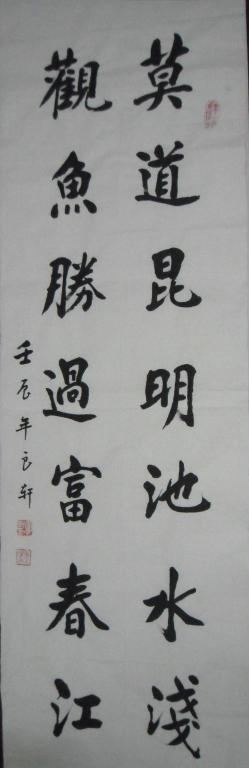 莫道昆明池水淺
觀魚勝過富春江
壬辰年良軒